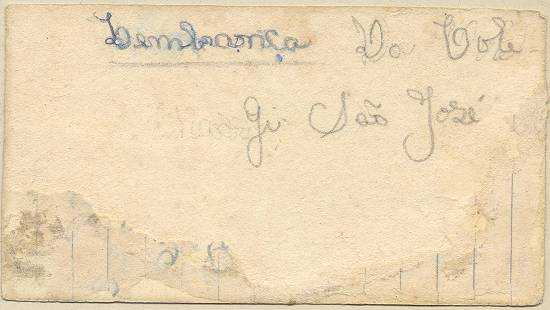 Lembrança Do Cole
Gi São José